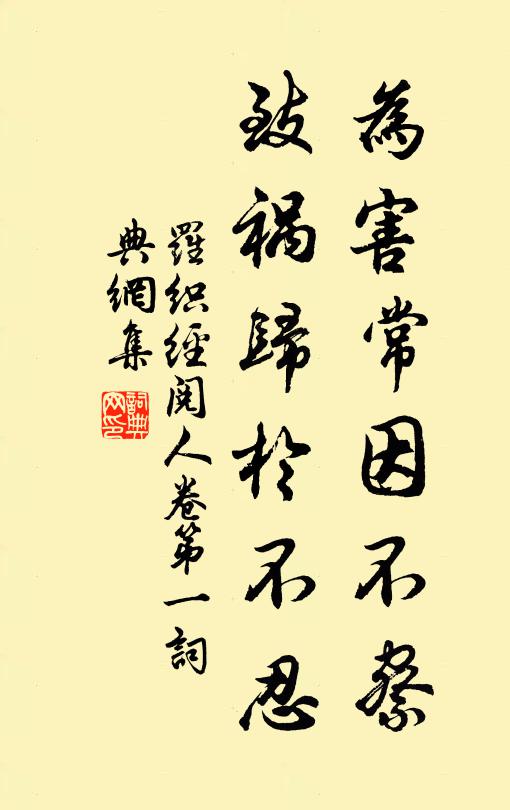 為害常因不察
致祸歸於不忍
羅织經閱人卷第一詞
典網集
詞典
网印